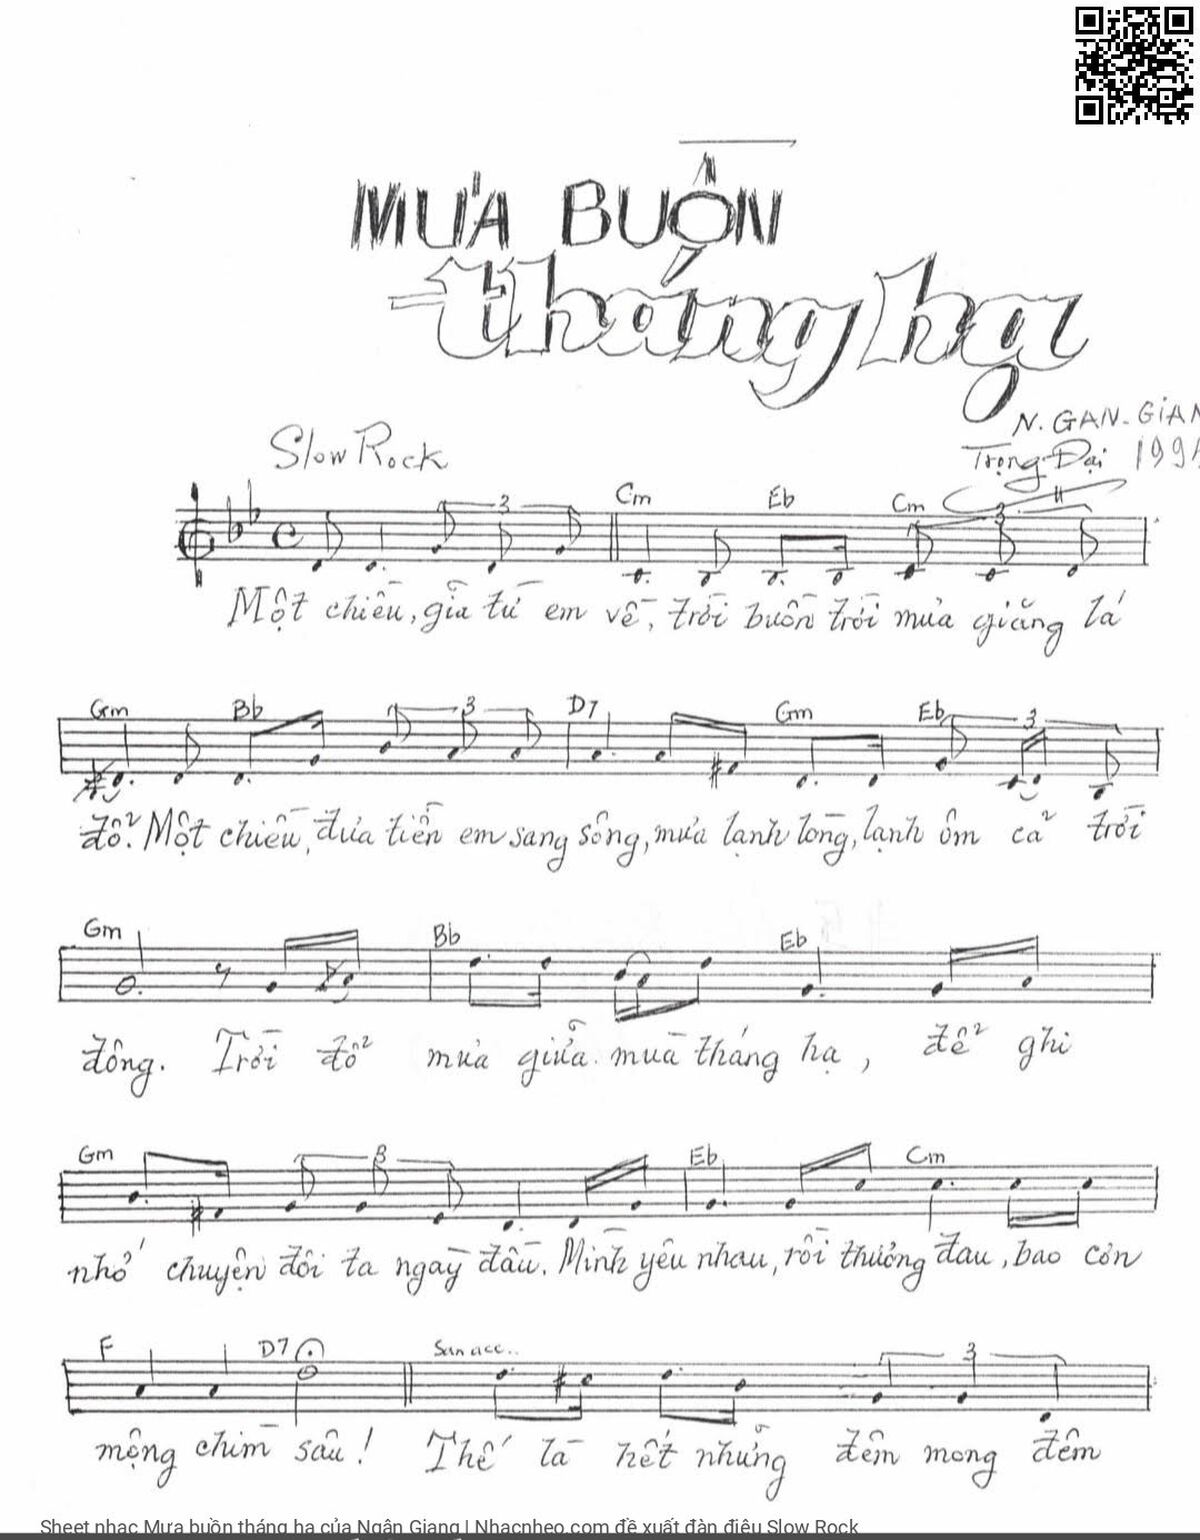 MƯA BUỒN
tháng hạ
N. GAN-GiAN
Slow Rock
Trọng Đại 199
3 Cm Eb Cm 3
Một chiều, giã từ em về, trời buồn trời mưa giăng lá
Gm Bb 3 D7 Gm Eb 3
đổ. Một chiều, đưa tiễn em sang sông, mưa lạnh lòng, lạnh ôm cả trời
Gm Bb Eb
đông. Trời đổ mưa giữa mùa tháng hạ, để ghi
Gm 3 Eb Cm
nhớ chuyện đôi ta ngày đầu. Mình yêu nhau, rồi thương đau, bao cơn
F D7 3
mộng chìm sâu! Thế là hết những đêm mong đêm
Sheet nhạc Mưa buồn tháng hạ của Ngân Giang | Nhacnheo.com đề xuất đàn điệu Slow Rock